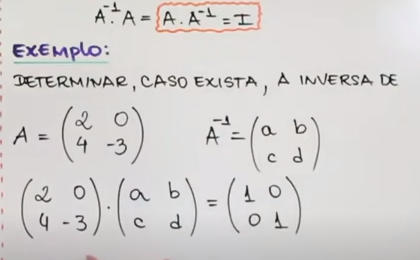 A⁻¹.A = A.A⁻¹ = I
EXEMPLO:
DETERMINAR, CASO EXISTA, A INVERSA DE
A = (2 0
4 -3) A⁻¹ = (a b
c d)
(2 0
4 -3) . (a b
c d) = (1 0
0 1)